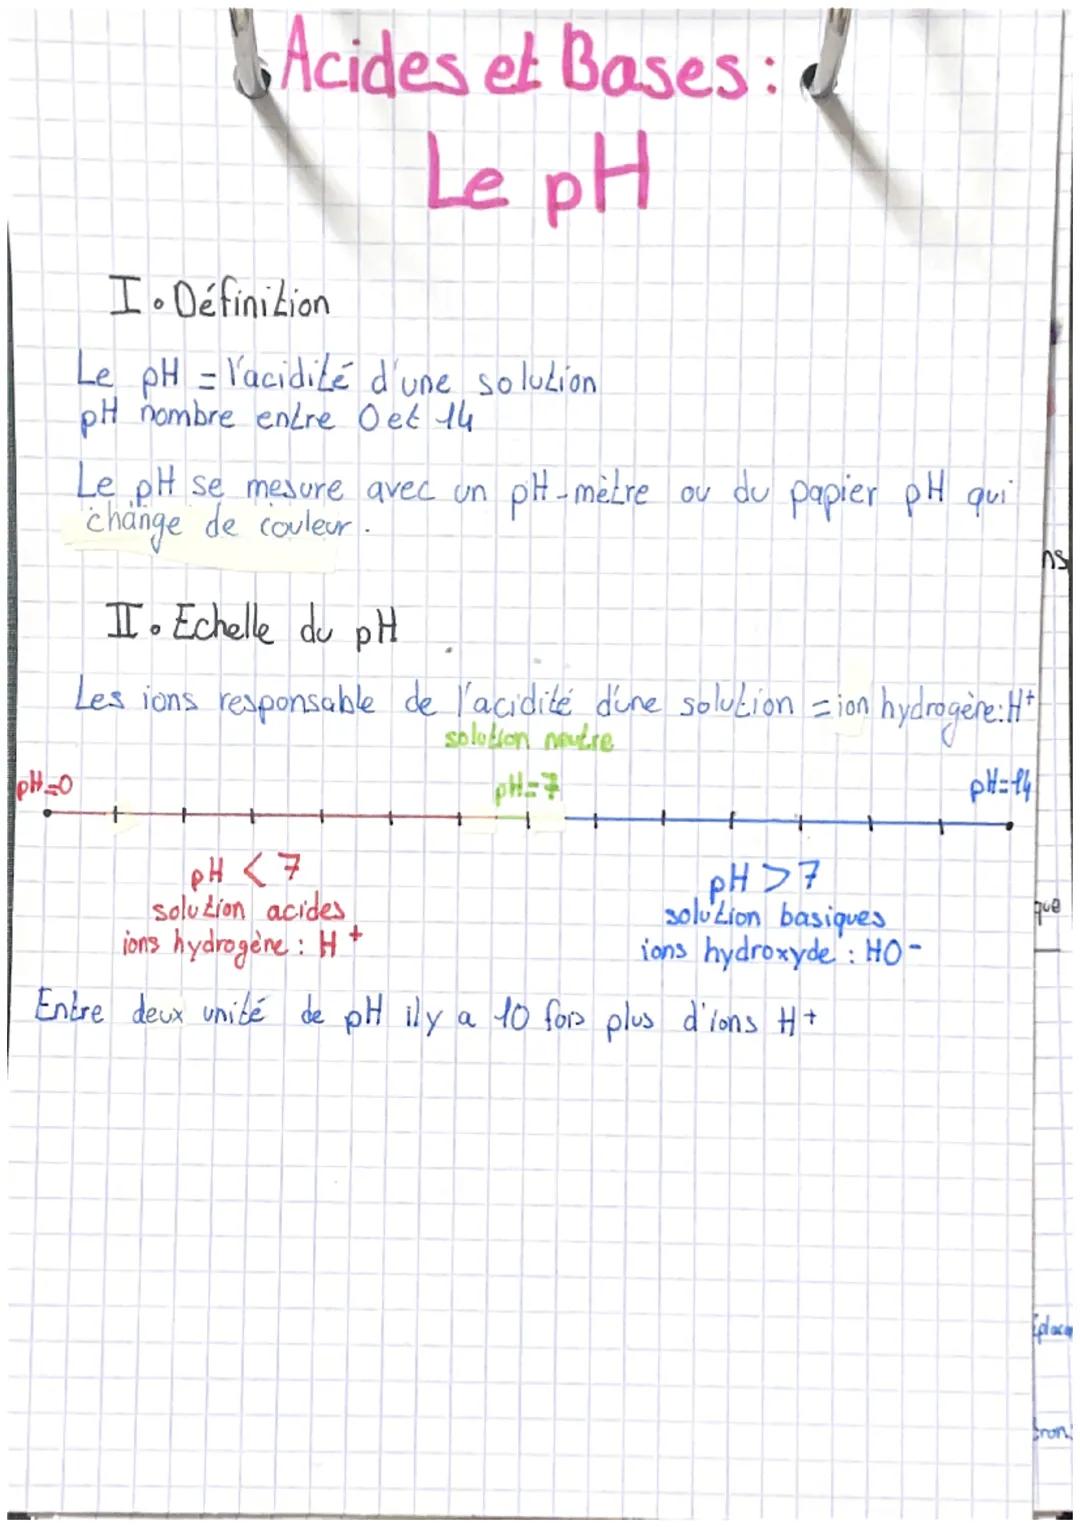 Acides et Bases :
Le pH
I. Définition
Le pH = l'acidité d'une solution
pH nombre entre 0 et 14
Le pH se mesure avec un pH-mètre ou du papier pH qui
change de couleur.
II. Echelle du pH
Les ions responsable de l'acidité d'une solution = ion hydrogène : H+
solution neutre
pH=0 pH=7 pH=14
pH < 7 pH > 7
solution acides solution basiques
ions hydrogène : H+ ions hydroxyde : HO-
Entre deux unité de pH il y a 10 fois plus d'ions H+
ns
que